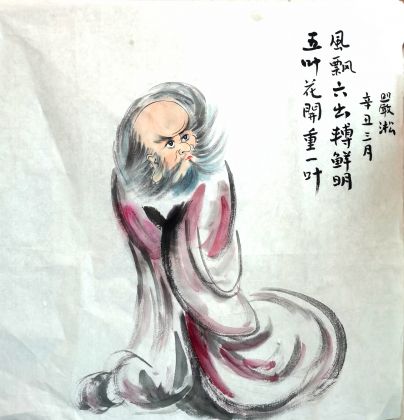 風飄六出轉鮮明
五叶花開重一叶
辛丑三月
嚴淞